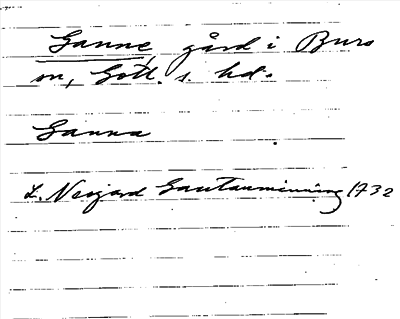 Ganne, gård i Burs
sn, Gotl. s. hd.
Ganna
L. Nergård Gautauminning 1732